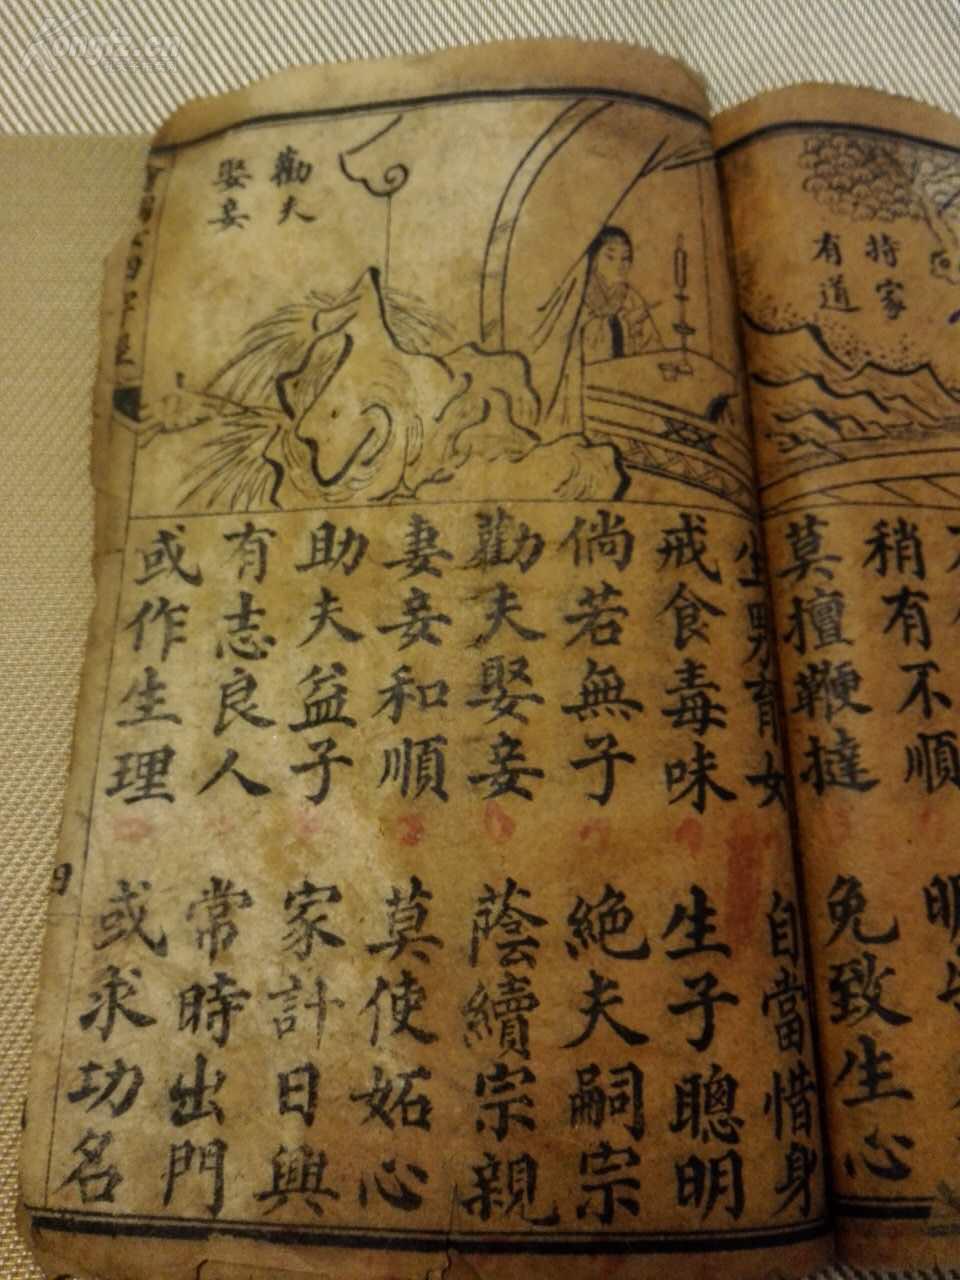 Kongfz.cn
持家
有道
稍有不順
莫擅鞭撻
免致生心
勸夫
娶妾
生男育女
自當惜身
戒食毒味
生子聰明
倘若無子
絶夫嗣宗
勸夫娶妾
蔭續宗親
妻妾和順
莫使妬心
助夫益子
家計日興
有志良人
常時出門
或作生理
或求功名